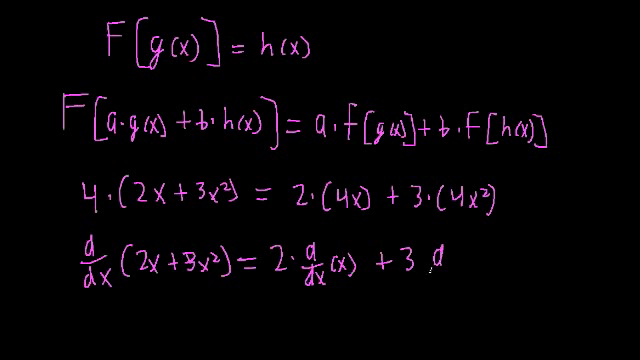 F[g(x)] = h(x)
F[a·g(x) + b·h(x)] = a·F[g(x)] + b·F[h(x)]
4·(2x + 3x²) = 2·(4x) + 3·(4x²)
d/dx (2x + 3x²) = 2·d/dx (x) + 3 d